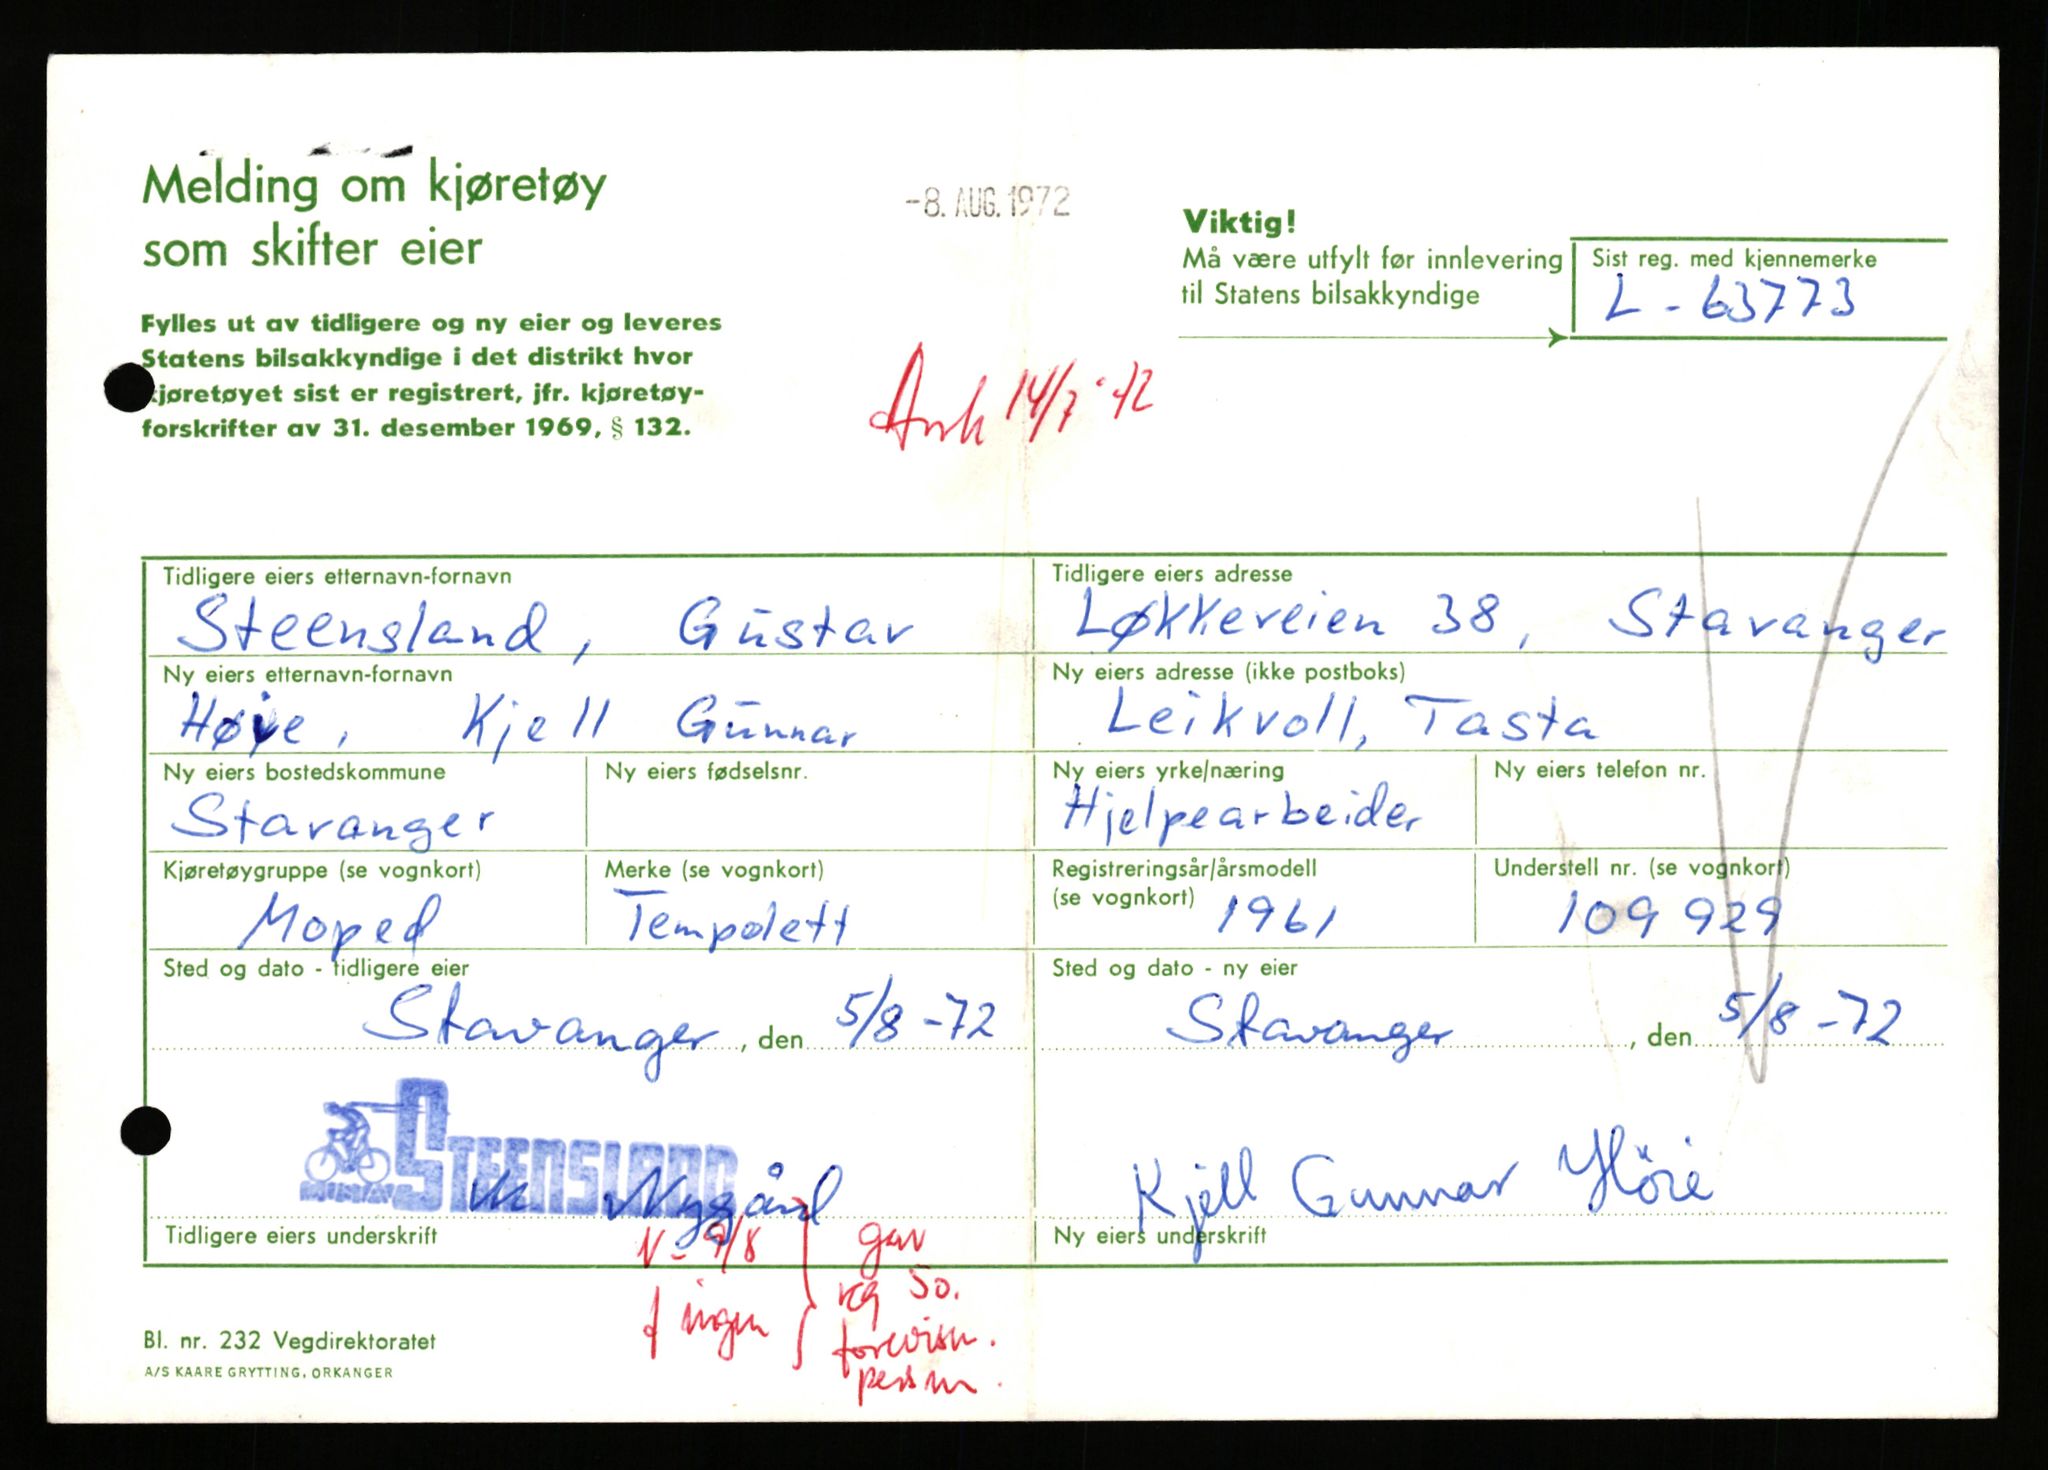 Melding om kjøretøy
som skifter eier
-8. AUG. 1972
Viktig!
Må være utfylt før innlevering
til Statens bilsakkyndige
Sist reg. med kjennemerke
L - 63773
Fylles ut av tidligere og ny eier og leveres
Statens bilsakkyndige i det distrikt hvor
kjøretøyet sist er registrert, jfr. kjøretøy-
forskrifter av 31. desember 1969, § 132.
Ank 14/7-72
Tidligere eiers etternavn-fornavn
Steensland, Gustav
Tidligere eiers adresse
Løkkeveien 38, Stavanger
Ny eiers etternavn-fornavn
Høie, Kjell Gunnar
Ny eiers adresse (ikke postboks)
Leikvoll, Tasta
Ny eiers bostedskommune
Stavanger
Ny eiers fødselsnr.
Ny eiers yrke/næring
Hjelpearbeider
Ny eiers telefon nr.
Kjøretøygruppe (se vognkort)
Moped
Merke (se vognkort)
Tempolett
Registreringsår/årsmodell
(se vognkort) 1961
Understell nr. (se vognkort)
109 929
Sted og dato - tidligere eier
Stavanger, den 5/8-72
Sted og dato - ny eier
Stavanger, den 5/8-72
STEENSLAND
Nygård
Kjell Gunnar Höie
Tidligere eiers underskrift
Ny eiers underskrift
N - 9/8
f ingen
gav
reg So.
forevisn.
Bl. nr. 232 Vegdirektoratet
A/S KAARE GRYTTING, ORKANGER